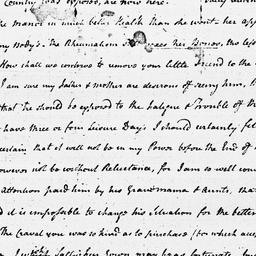 Country was opposed, are now here.
the Manor in much better Health than she went. her app
my Body's. The Rheumatism her Bones, the less
How shall we contrive to remove your little Friend to the
I am sure my Father & Mother are desirous of seeing him, B
that he should be exposed to the fatigue & Trouble of
have three or four Leisure Days I should certainly fe
certain that it will not be in my Power before the End of
however not be without Reluctance, for I am so well con
Attention paid him by his Grandmama & Aunts, that
d it is impossible to change his Situation for the better
The Cravat you was so kind as to purchase (for which acce